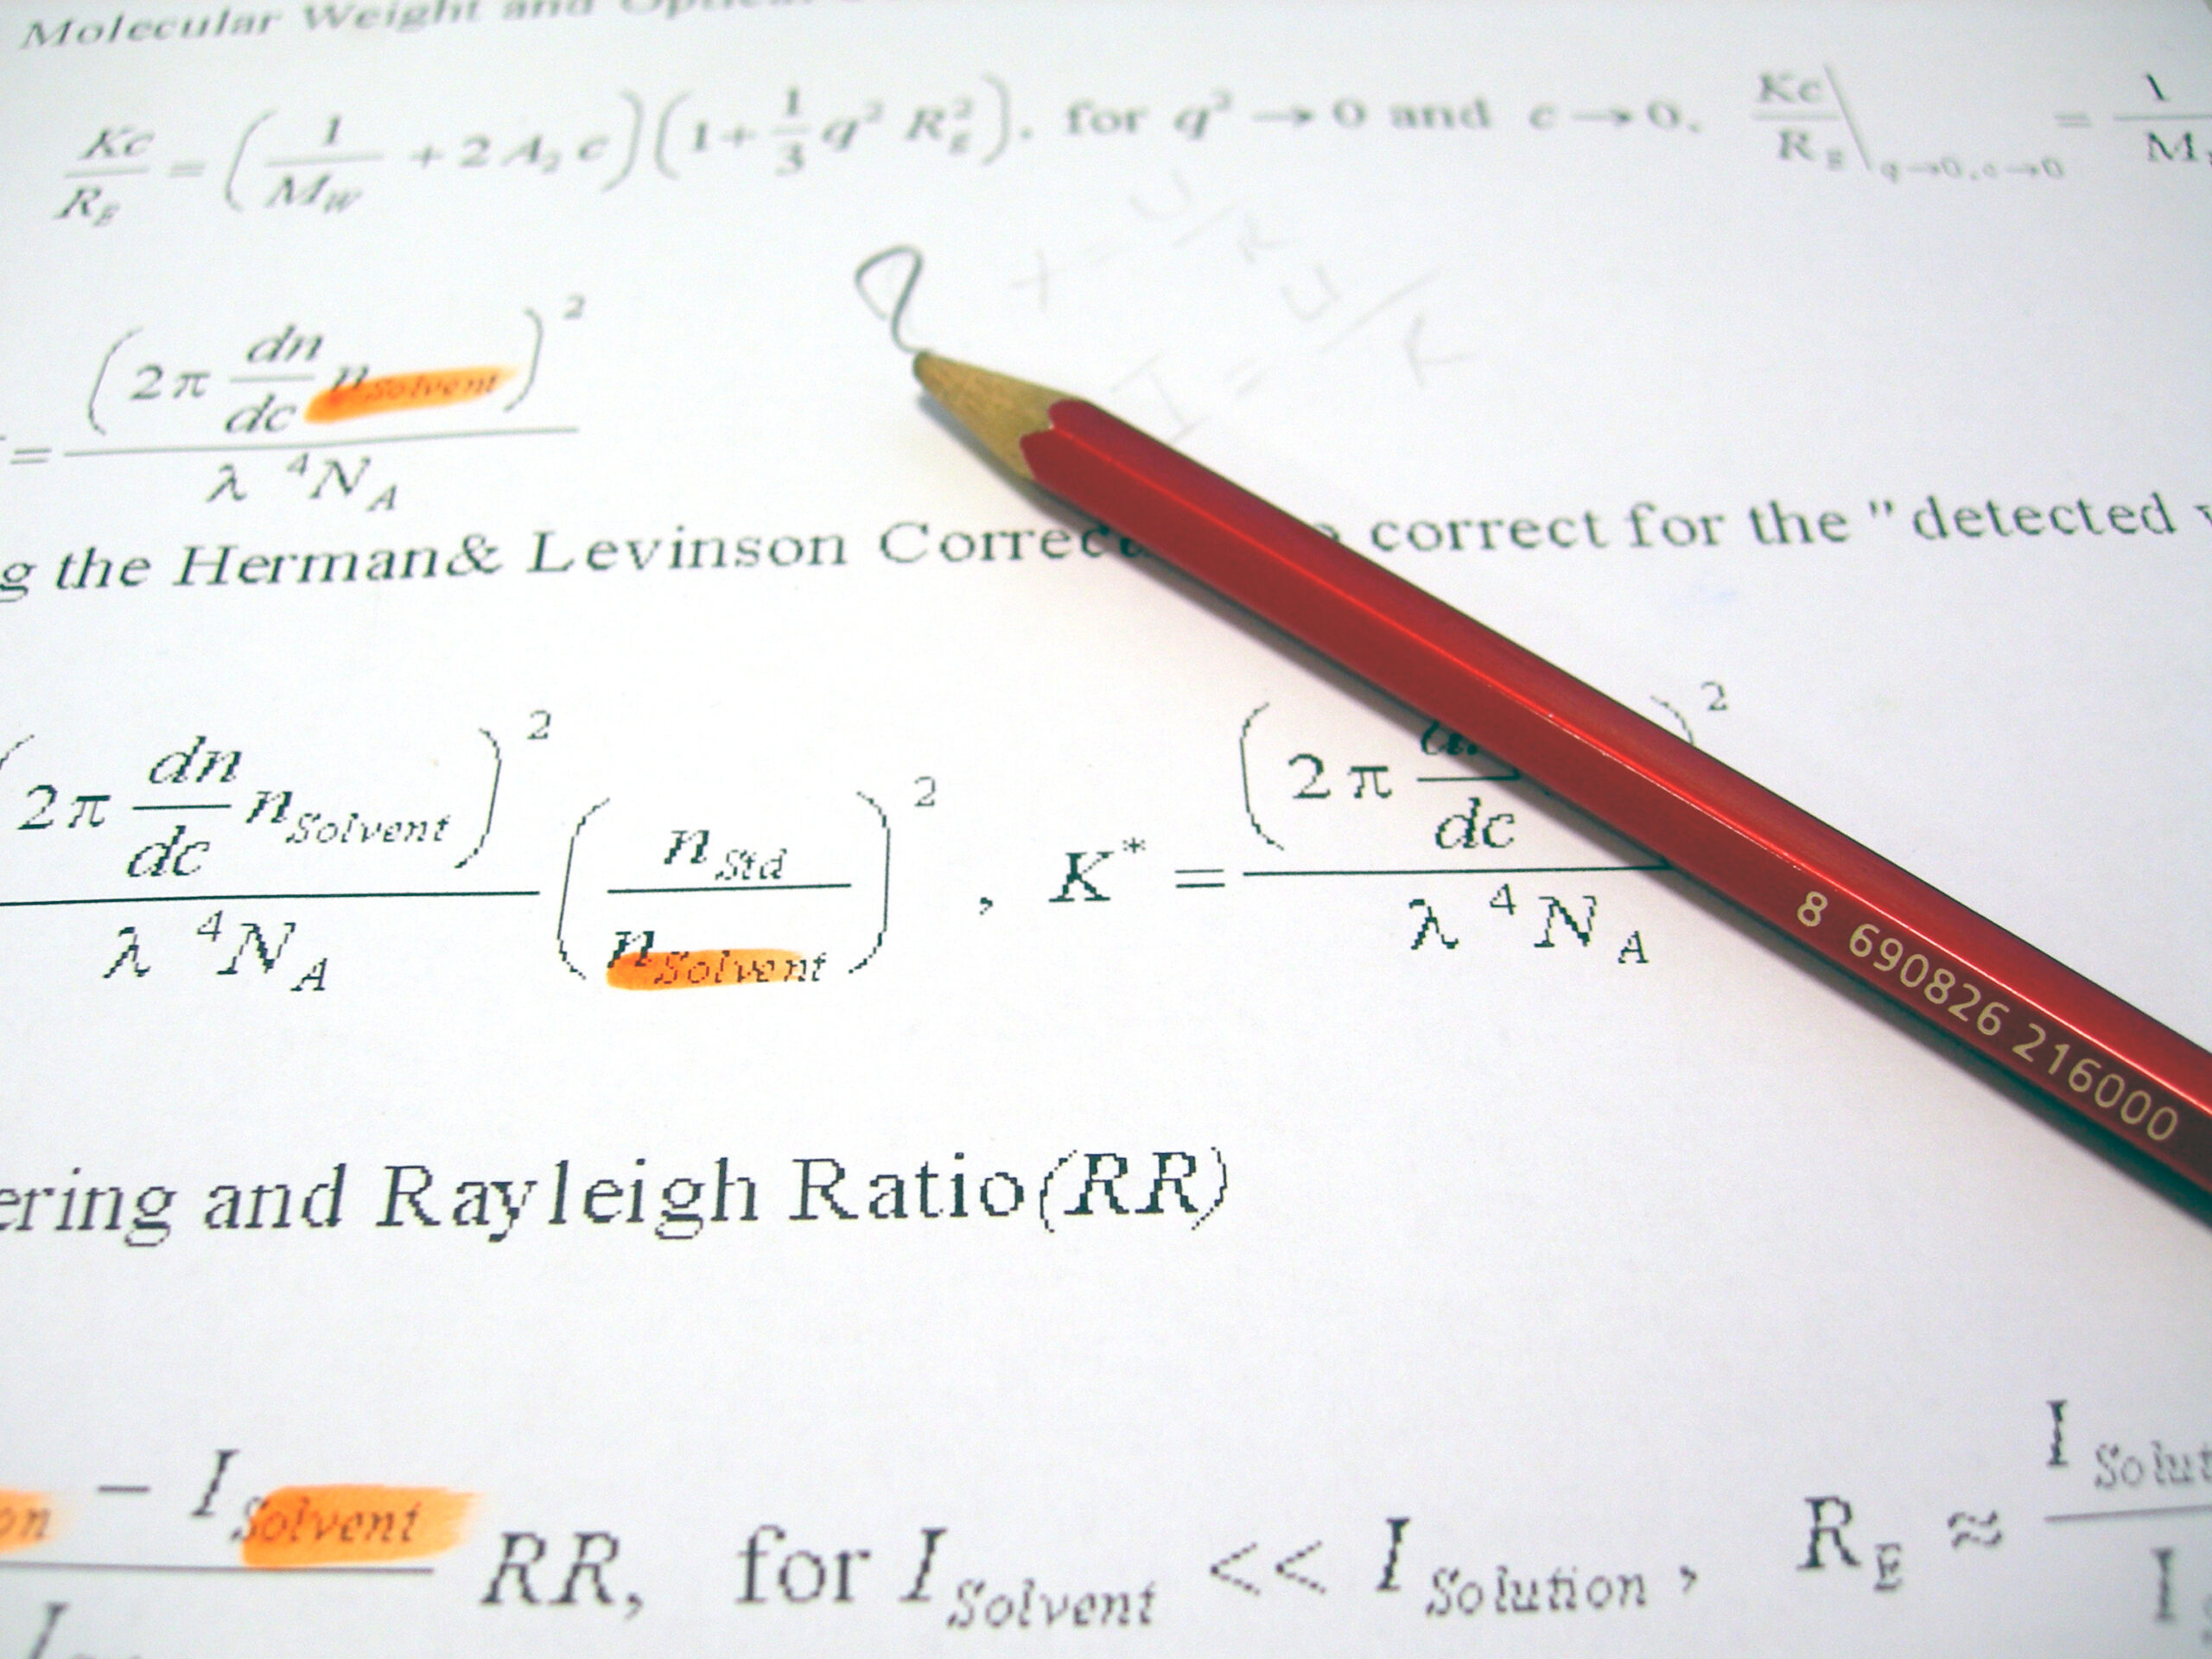 Molecular Weight and
Kc/R_E = (1/M_W + 2 A_2 c)(1 + 1/3 q² R_g²), for q² → 0 and c → 0, Kc/R_E |_{q→0, c→0} = 1/M
= (2π dn/dc n_Solvent)² / λ⁴N_A
I = U/R
g the Herman& Levinson correct for the "detected
(2π dn/dc n_Solvent)² / λ⁴N_A (n_Std / n_Solvent)² , K* = (2π /dc )² / λ⁴N_A
8 690826 216000
ering and Rayleigh Ratio(RR)
on − I_Solvent / I RR, for I_Solvent << I_Solution , R_E ≈ I_Solut / I